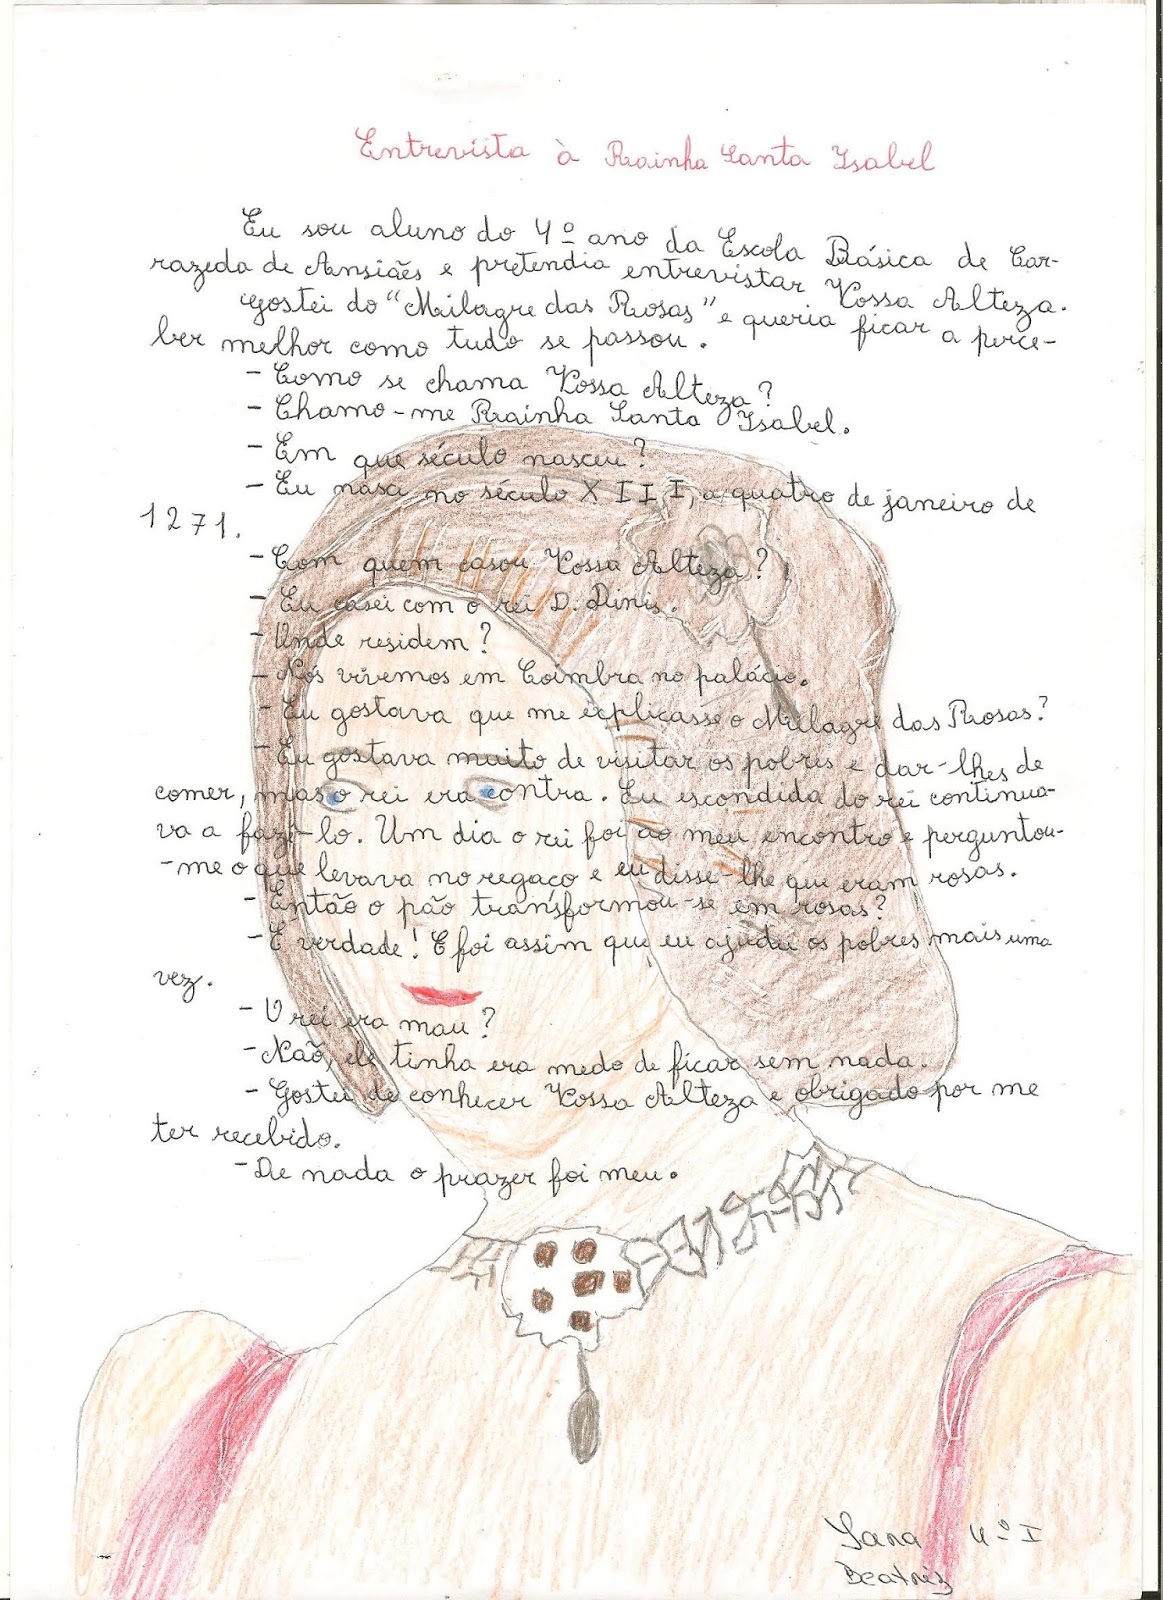 Entrevista à Rainha Santa Isabel
Eu sou aluno do 4º ano da Escola Básica de Car-
razeda de Ansiães e pretendia entrevistar Vossa Alteza.
Gostei do "Milagre das Rosas" e queria ficar a perce-
ber melhor como tudo se passou.
- Como se chama Vossa Alteza?
- Chamo-me Rainha Santa Isabel.
- Em que século nasceu?
- Eu nasci no século XIII, a quatro de janeiro de
1271.
- Com quem casou Vossa Alteza?
- Eu casei com o rei D. Dinis.
- Onde residem?
- Nós vivemos em Coimbra no palácio.
- Eu gostava que me explicasse o Milagre das Rosas?
- Eu gostava muito de visitar os pobres e dar-lhes de
comer, mas o rei era contra. Eu escondida do rei continua-
va a fazê-lo. Um dia o rei foi ao meu encontro e perguntou-
-me o que levava no regaço e eu disse-lhe que eram rosas.
- Então o pão transformou-se em rosas?
- É verdade! E foi assim que eu ajudei os pobres mais uma
vez.
- O rei era mau?
- Não, ele tinha era medo de ficar sem nada.
- Gostei de conhecer Vossa Alteza e obrigado por me
ter recebido.
- De nada o prazer foi meu.
Sara 4º I
Beatriz